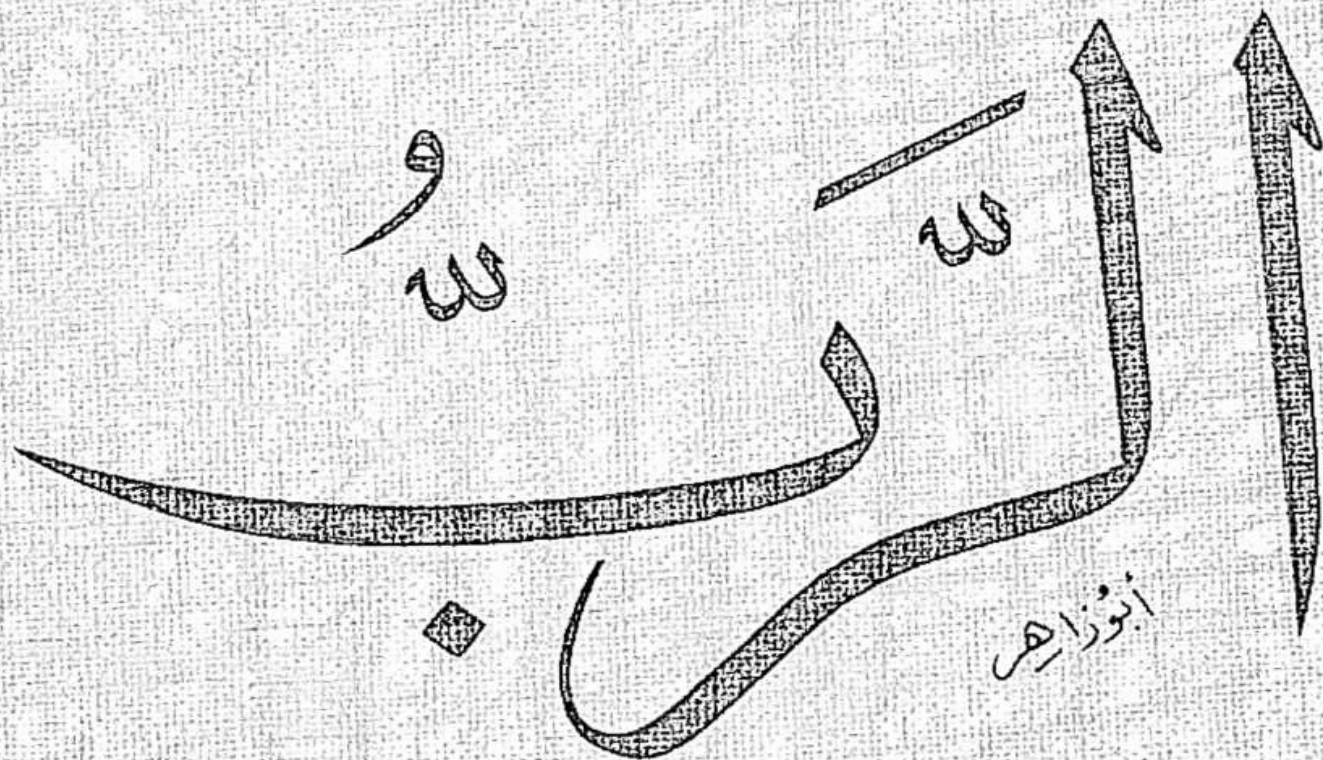 الرَّبُّ
أبُو زاهر